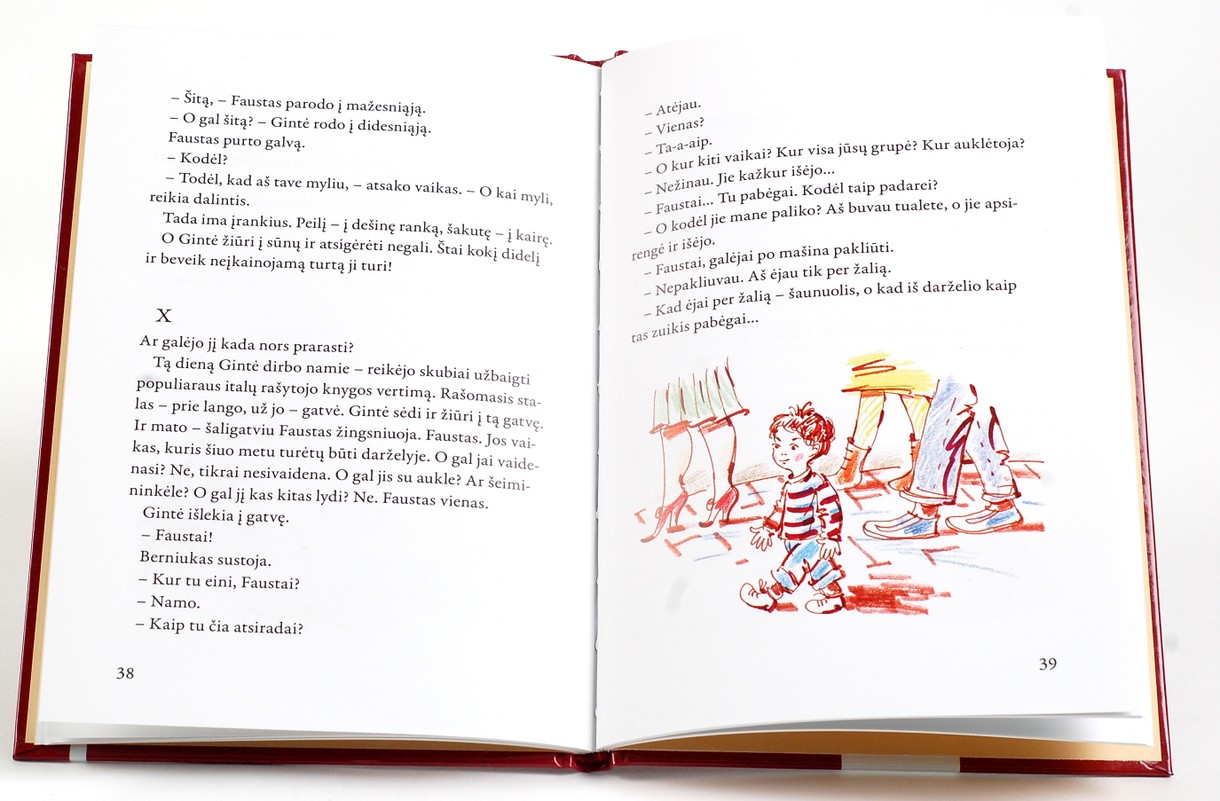 – Šitą, – Faustas parodo į mažesniąją.
– O gal šitą? – Gintė rodo į didesniąją.
Faustas purto galvą.
– Kodėl?
– Todėl, kad aš tave myliu, – atsako vaikas. – O kai myli,
reikia dalintis.
Tada ima įrankius. Peilį – į dešinę ranką, šakutę – į kairę.
O Gintė žiūri į sūnų ir atsigėrėti negali. Štai kokį didelį
ir beveik neįkainojamą turtą ji turi!
X
Ar galėjo jį kada nors prarasti?
Tą dieną Gintė dirbo namie – reikėjo skubiai užbaigti
populiaraus italų rašytojo knygos vertimą. Rašomasis sta-
las – prie lango, už jo – gatvė. Gintė sėdi ir žiūri į tą gatvę.
Ir mato – šaligatviu Faustas žingsniuoja. Faustas. Jos vai-
kas, kuris šiuo metu turėtų būti darželyje. O gal jai vaide-
nasi? Ne, tikrai nesivaidena. O gal jis su aukle? Ar šeimi-
ninkėle? O gal jį kas kitas lydi? Ne. Faustas vienas.
Gintė išlekia į gatvę.
– Faustai!
Berniukas sustoja.
– Kur tu eini, Faustai?
– Namo.
– Kaip tu čia atsiradai?
38
– Atėjau.
– Vienas?
– Ta-a-aip.
– O kur kiti vaikai? Kur visa jūsų grupė? Kur auklėtoja?
– Nežinau. Jie kažkur išėjo...
– Faustai... Tu pabėgai. Kodėl taip padarei?
– O kodėl jie mane paliko? Aš buvau tualete, o jie apsi-
rengė ir išėjo.
– Faustai, galėjai po mašina pakliūti.
– Nepakliuvau. Aš ėjau tik per žalią.
– Kad ėjai per žalią – šaunuolis, o kad iš darželio kaip
tas zuikis pabėgai...
39